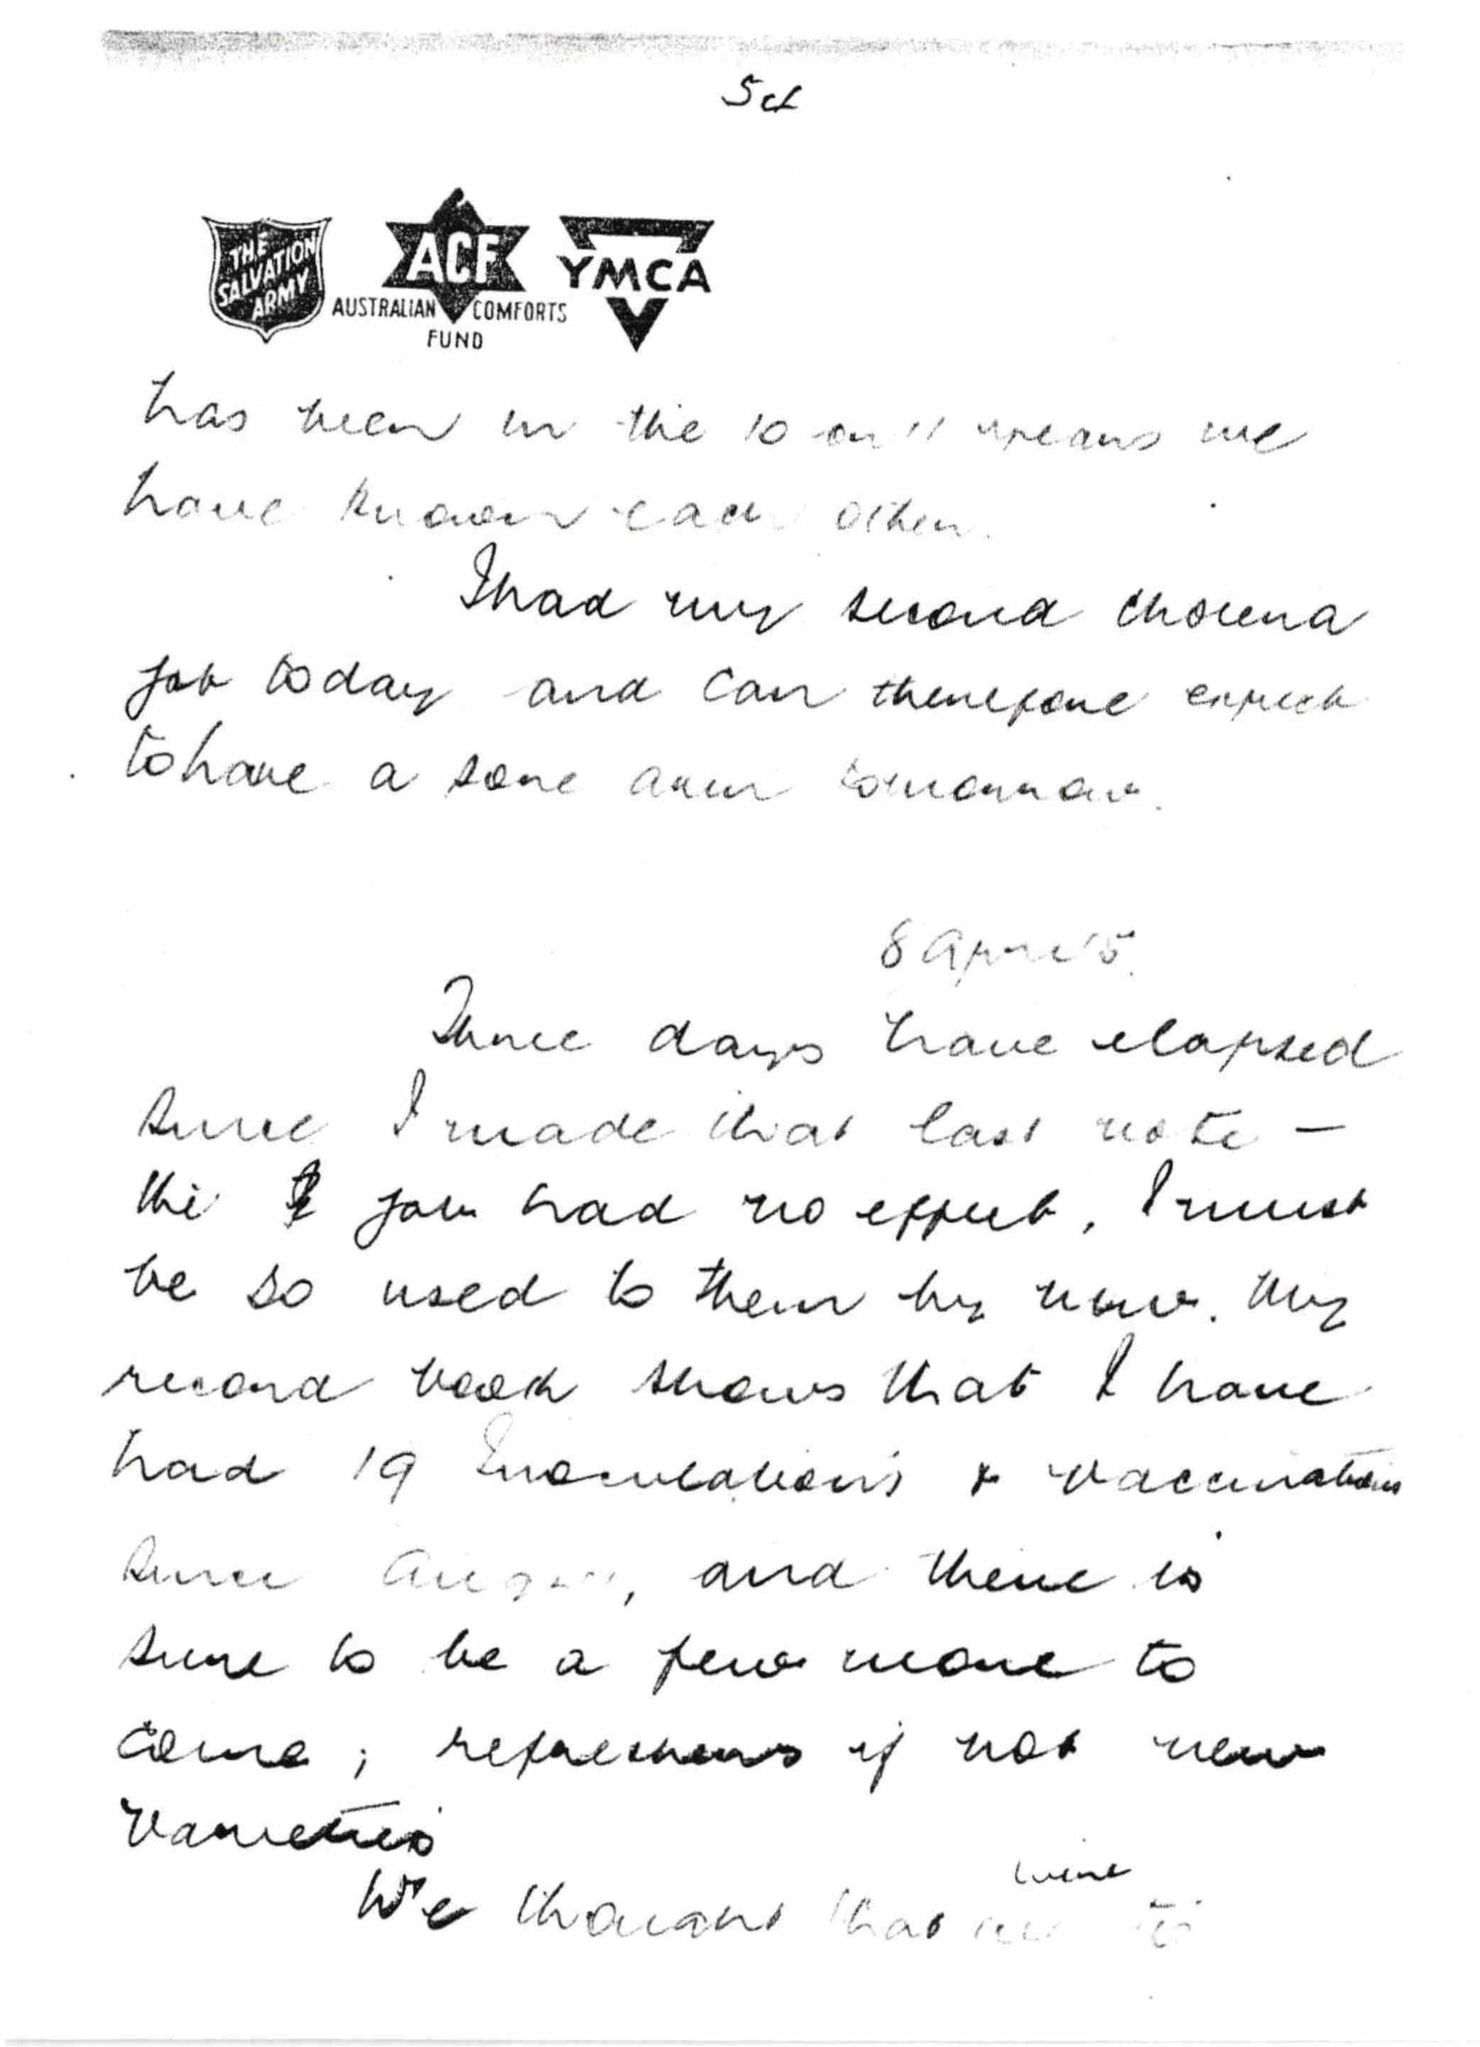 5d
THE SALVATION ARMY
ACF
AUSTRALIAN COMFORTS FUND
YMCA
has been in the 10 or 11 years we
have known each other.
I had my second cholera
jab today and can therefore expect
to have a sore arm tomorrow.
8 April 5.
Three days have elapsed
since I made that last note —
the jab had no effect, I must
be so used to them by now. My
record book shows that I have
had 19 Inoculations & vaccinations
since August, and there is
sure to be a few more to
come; refreshers if not new
varieties
We thought that we were to